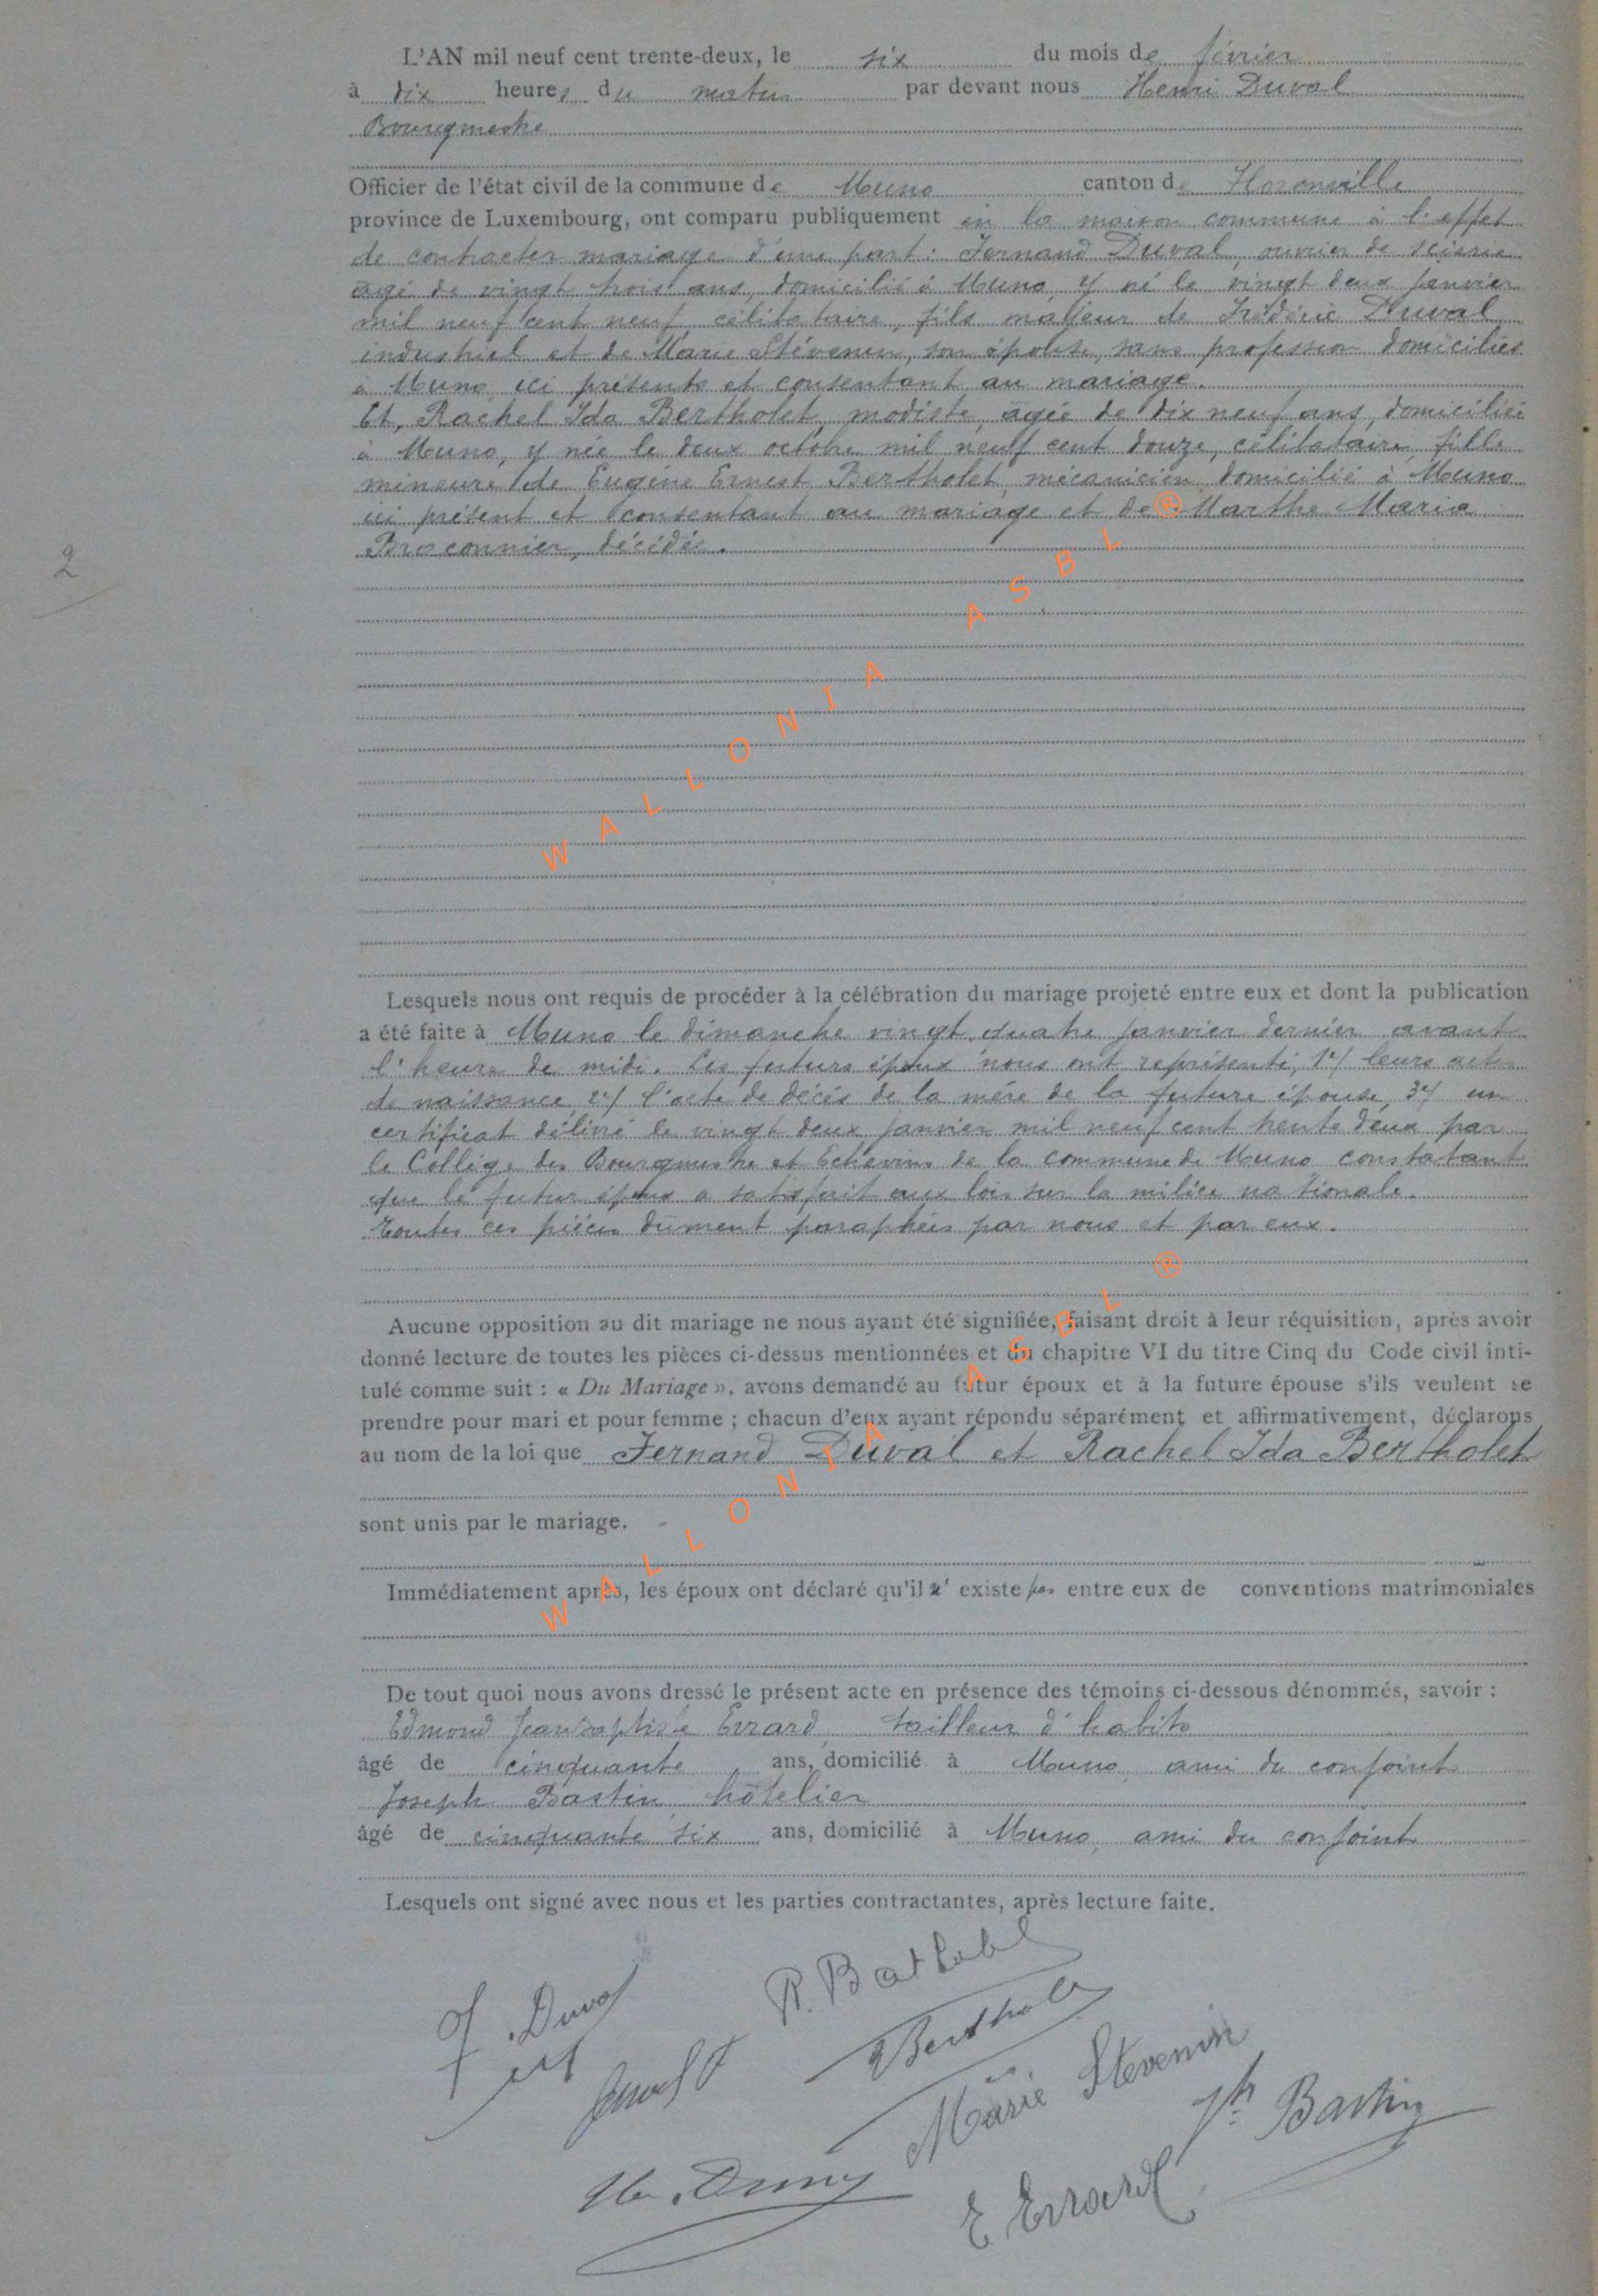 L'AN mil neuf cent trente-deux, le six du mois de février
à dix heures du matin par devant nous Henri Duval
Bourgmestre
Officier de l'état civil de la commune de Muno canton de Florenville
province de Luxembourg, ont comparu publiquement en la maison commune à l'effet
de contracter mariage d'une part : Fernand Duval, ouvrier de scierie
âgé de vingt trois ans, domicilié à Muno, y né le vingt deux janvier
mil neuf cent neuf, célibataire, fils majeur de Frédéric Duval
industriel et de Marie Stévenin, son épouse, sans profession domiciliés
à Muno, ici présents et consentant au mariage.
Et, Rachel Ida Bertholet, modiste, âgée de dix neuf ans, domiciliée
à Muno, y née le deux octobre mil neuf cent douze, célibataire, fille
mineure de Eugène Ernest Bertholet, mécanicien, domicilié à Muno
ici présent et consentant au mariage et de Marthe Maria
Braconnier, décédée.
2
WALLONIA ASBL ®
Lesquels nous ont requis de procéder à la célébration du mariage projeté entre eux et dont la publication
a été faite à Muno le dimanche vingt quatre janvier dernier avant
l'heure de midi. Les futurs époux nous ont représenté, 1°/ leurs actes
de naissance, 2°/ l'acte de décès de la mère de la future épouse, 3°/ un
certificat délivré le vingt deux janvier mil neuf cent trente deux par
le Collège des Bourgmestre et Echevins de la commune de Muno constatant
que le futur époux a satisfait aux lois sur la milice nationale.
Toutes ces pièces dûment paraphées par nous et par eux.
Aucune opposition au dit mariage ne nous ayant été signifiée, faisant droit à leur réquisition, après avoir
donné lecture de toutes les pièces ci-dessus mentionnées et du chapitre VI du titre Cinq du Code civil inti-
tulé comme suit : « Du Mariage », avons demandé au futur époux et à la future épouse s'ils veulent se
prendre pour mari et pour femme ; chacun d'eux ayant répondu séparément et affirmativement, déclarons
au nom de la loi que Fernand Duval et Rachel Ida Bertholet
sont unis par le mariage. -
WALLONIA ASBL ®
Immédiatement après, les époux ont déclaré qu'il n' existe pas entre eux de conventions matrimoniales
De tout quoi nous avons dressé le présent acte en présence des témoins ci-dessous dénommés, savoir :
Edmond Jean Baptiste Errard, tailleur d'habits
âgé de cinquante ans, domicilié à Muno, ami du conjoint
Joseph Bastin, hôtelier
âgé de cinquante six ans, domicilié à Muno, ami du conjoint
Lesquels ont signé avec nous et les parties contractantes, après lecture faite.
R. Bertholet
F. Duval
Bertholet
Duval F
Marie Stevenin
Jh Bastin
H. Duval
E Errard